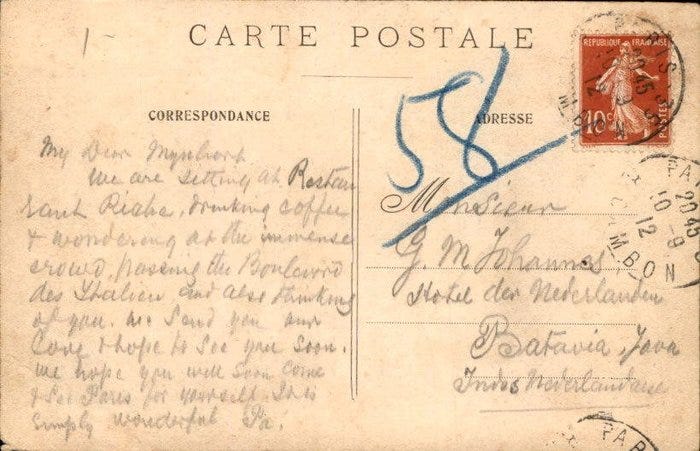 1-
CARTE POSTALE
58
REPUBLIQUE FRANCAISE
10c.
POSTES
PARIS
20 45
10-9
12
CAMBON
CORRESPONDANCE
My Dear
We are sitting at Restau
rant Riche, drinking coffee
& wondering at the immense
crowd, passing the Boulevard
des Italien, and also thinking
of you. we send you our
Love & hope to See you Soon.
we hope you will Soon Come
& See Paris for yourself. It is
Simply wonderful Pa.
ADRESSE
Monsieur
G. M Johannes
Hotel der Nederlanden
Batavia, Java
Indes Neerlandaise
PARIS
20 45
10-9
12
CAMBON
PAR